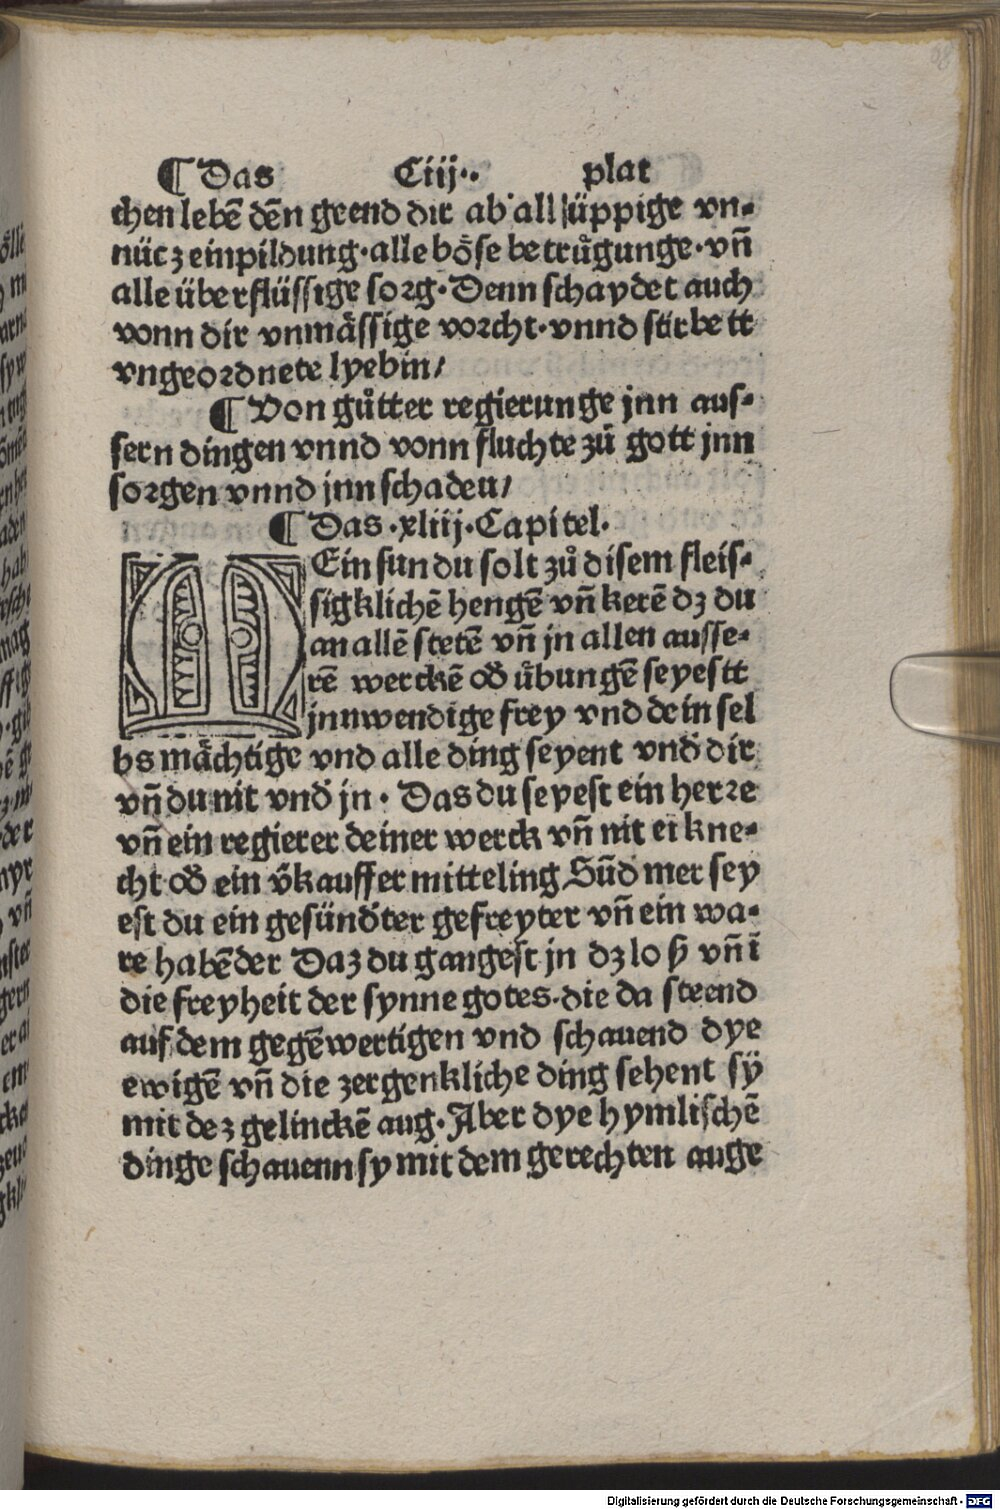 ¶ Das Ciij·. plat
chen lebē dēn geend dir ab all üppige vn-
nücz einpildung·alle böse betrůgunge·vñ
alle überflüssige sorg·Denn schaydet auch
vonn dir vnmässige vorcht·vnnd stirbett
vngeordnete lyebin/
¶ Von gůtter regierunge jnn aus-
sern dingen vnnd vonn fluchte zů gott jnn
sorgen vnnd jnn schaden/
¶ Das·xliij·Capitel·
MEin sun du solt zů disem fleis-
sigklichē hengē vñ kerē dz du
an allē stetē vñ jn allen ausse-
rē werckē oď übungē seyestt
jnnwendige frey vnd dein sel
bs mächtige vnd alle ding seyent vnď dir
vñ du nit vnď jn· Das du seyest ein herre
vñ ein regierer deiner werck vñ nit ei kne-
cht oď ein v̈kauffer mitteling Sūd mer sey
est du ein gesünďter gefreyter vñ ein wa-
re habēder Daz du gangest jn dz loß vñ ī
die freyheit der synne gotes·die da steend
auf dem gegēwertigen vnd schauend dye
ewigē vñ die zergenkliche ding sehent sÿ
mit dez gelinckē aug·Aber dye hymlischē
dinge schauenn sy mit dem gerechten auge
Digitalisierung gefördert durch die Deutsche Forschungsgemeinschaft - DFG